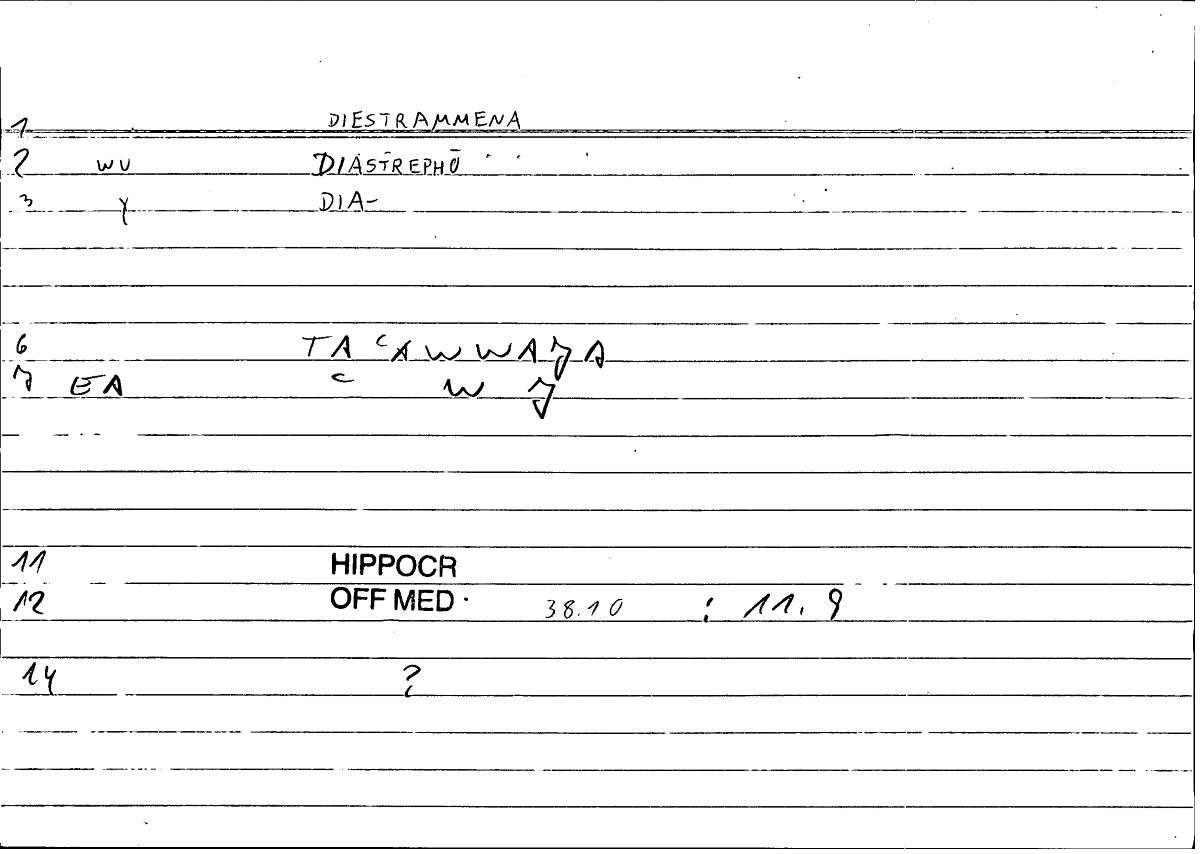 1 DIESTRAMMENA
2 WV DIASTREPHŌ
3 Y DIA-
6
7 EA
11 HIPPOCR
12 OFF MED · 38.10 : 11.9
14 ?